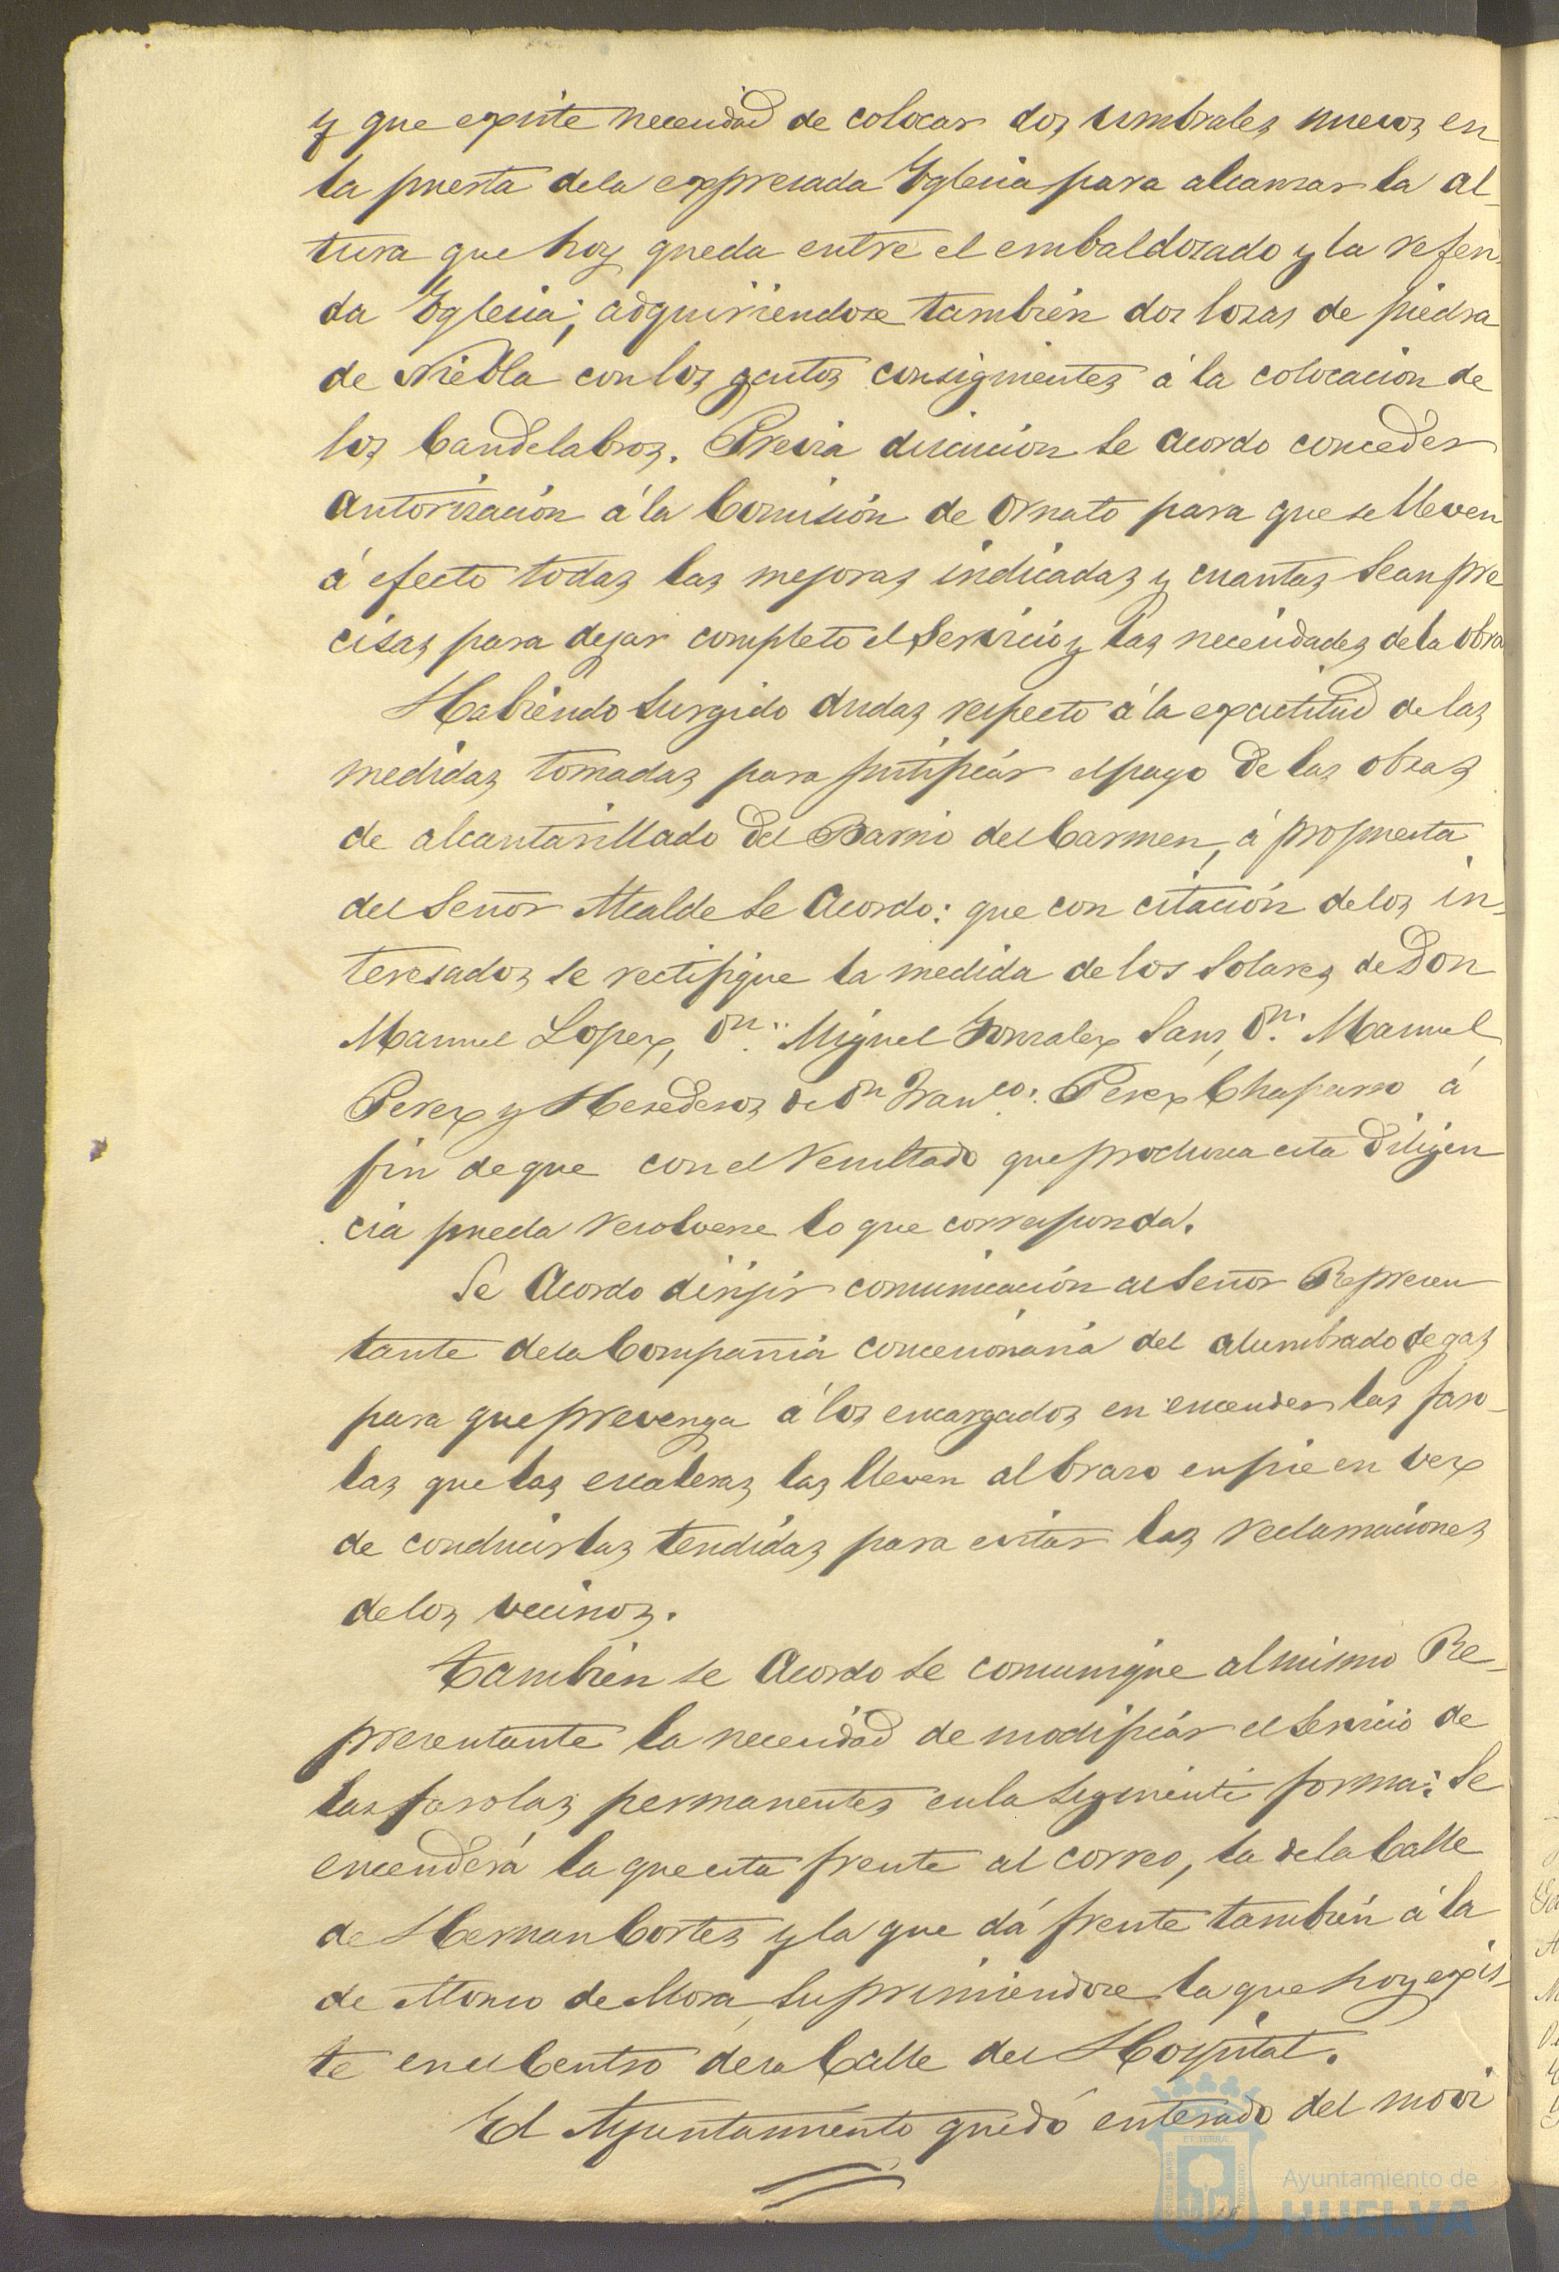 y que existe necesidad de colocar dos umbrales nuevos en
la puerta dela expresada Yglesia para alcanzar la al-
tura que hoy queda entre el embaldosado y la referi-
da Yglesia; adquiriendose también dos losas de piedra
de Niebla con los gastos consiguientes á la colocacion de
los Candelabros. Previa discusion se acordo conceder
autorización á la Comisión de Ornato para que se lleven
á efecto todas las mejoras indicadas y cuantas sean pre
cisas para dejar completo el servicio y las necesidades de la obra
Habiendo surgido dudas respecto á la exactitud de las
medidas tomadas para justificár el pago de las obras
de alcantarillado del Barrio del Carmen, á propuesta
del Señor Alcalde se acordo: que con citación de los in-
teresados se rectifique la medida de los solares de Don
Manuel Lopez, Dn. Miguel Gonzalez Sanz, Dn. Manuel
Perez y Herederos de Dn Franco. Perez Chaparro á
fin de que con el resultado que produzca esta diligen
cia pueda resolverse lo que corresponda.
Se acordo dirijir comunicación al Señor Represen
tante de la Compañia concesionaria del alumbrado de gas
para que prevenga á los encargados en encender las faro-
las que las escaleras las lleven al brazo en pie en vez
de conducirlas tendidas para evitar las reclamaciones
de los vecinos.
También se acordo se comunique al mismo Re-
presentante la necesidad de modificár el servicio de
las farolas permanentes en la siguiente forma: se
encenderá la que esta frente al correo, la de la Calle
de Hernan Cortes y la que dá frente también á la
de Alonso de Mora, suprimiendose la que hoy exis-
te en el Centro de la Calle del Hospital.
El Ayuntamiento quedó enterado del movi
Ayuntamiento de
HUELVA